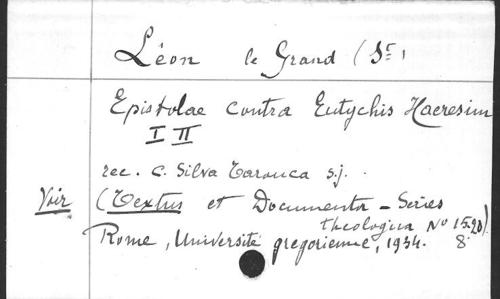 Léon le Grand (St)
Epistolae contra Eutychis Haeresim
I II
rec. C. Silva Tarouca s.j.
Voir (Textus et Documenta - Series
theologica No 15.20)
Rome, Université grégorienne, 1934. 8°